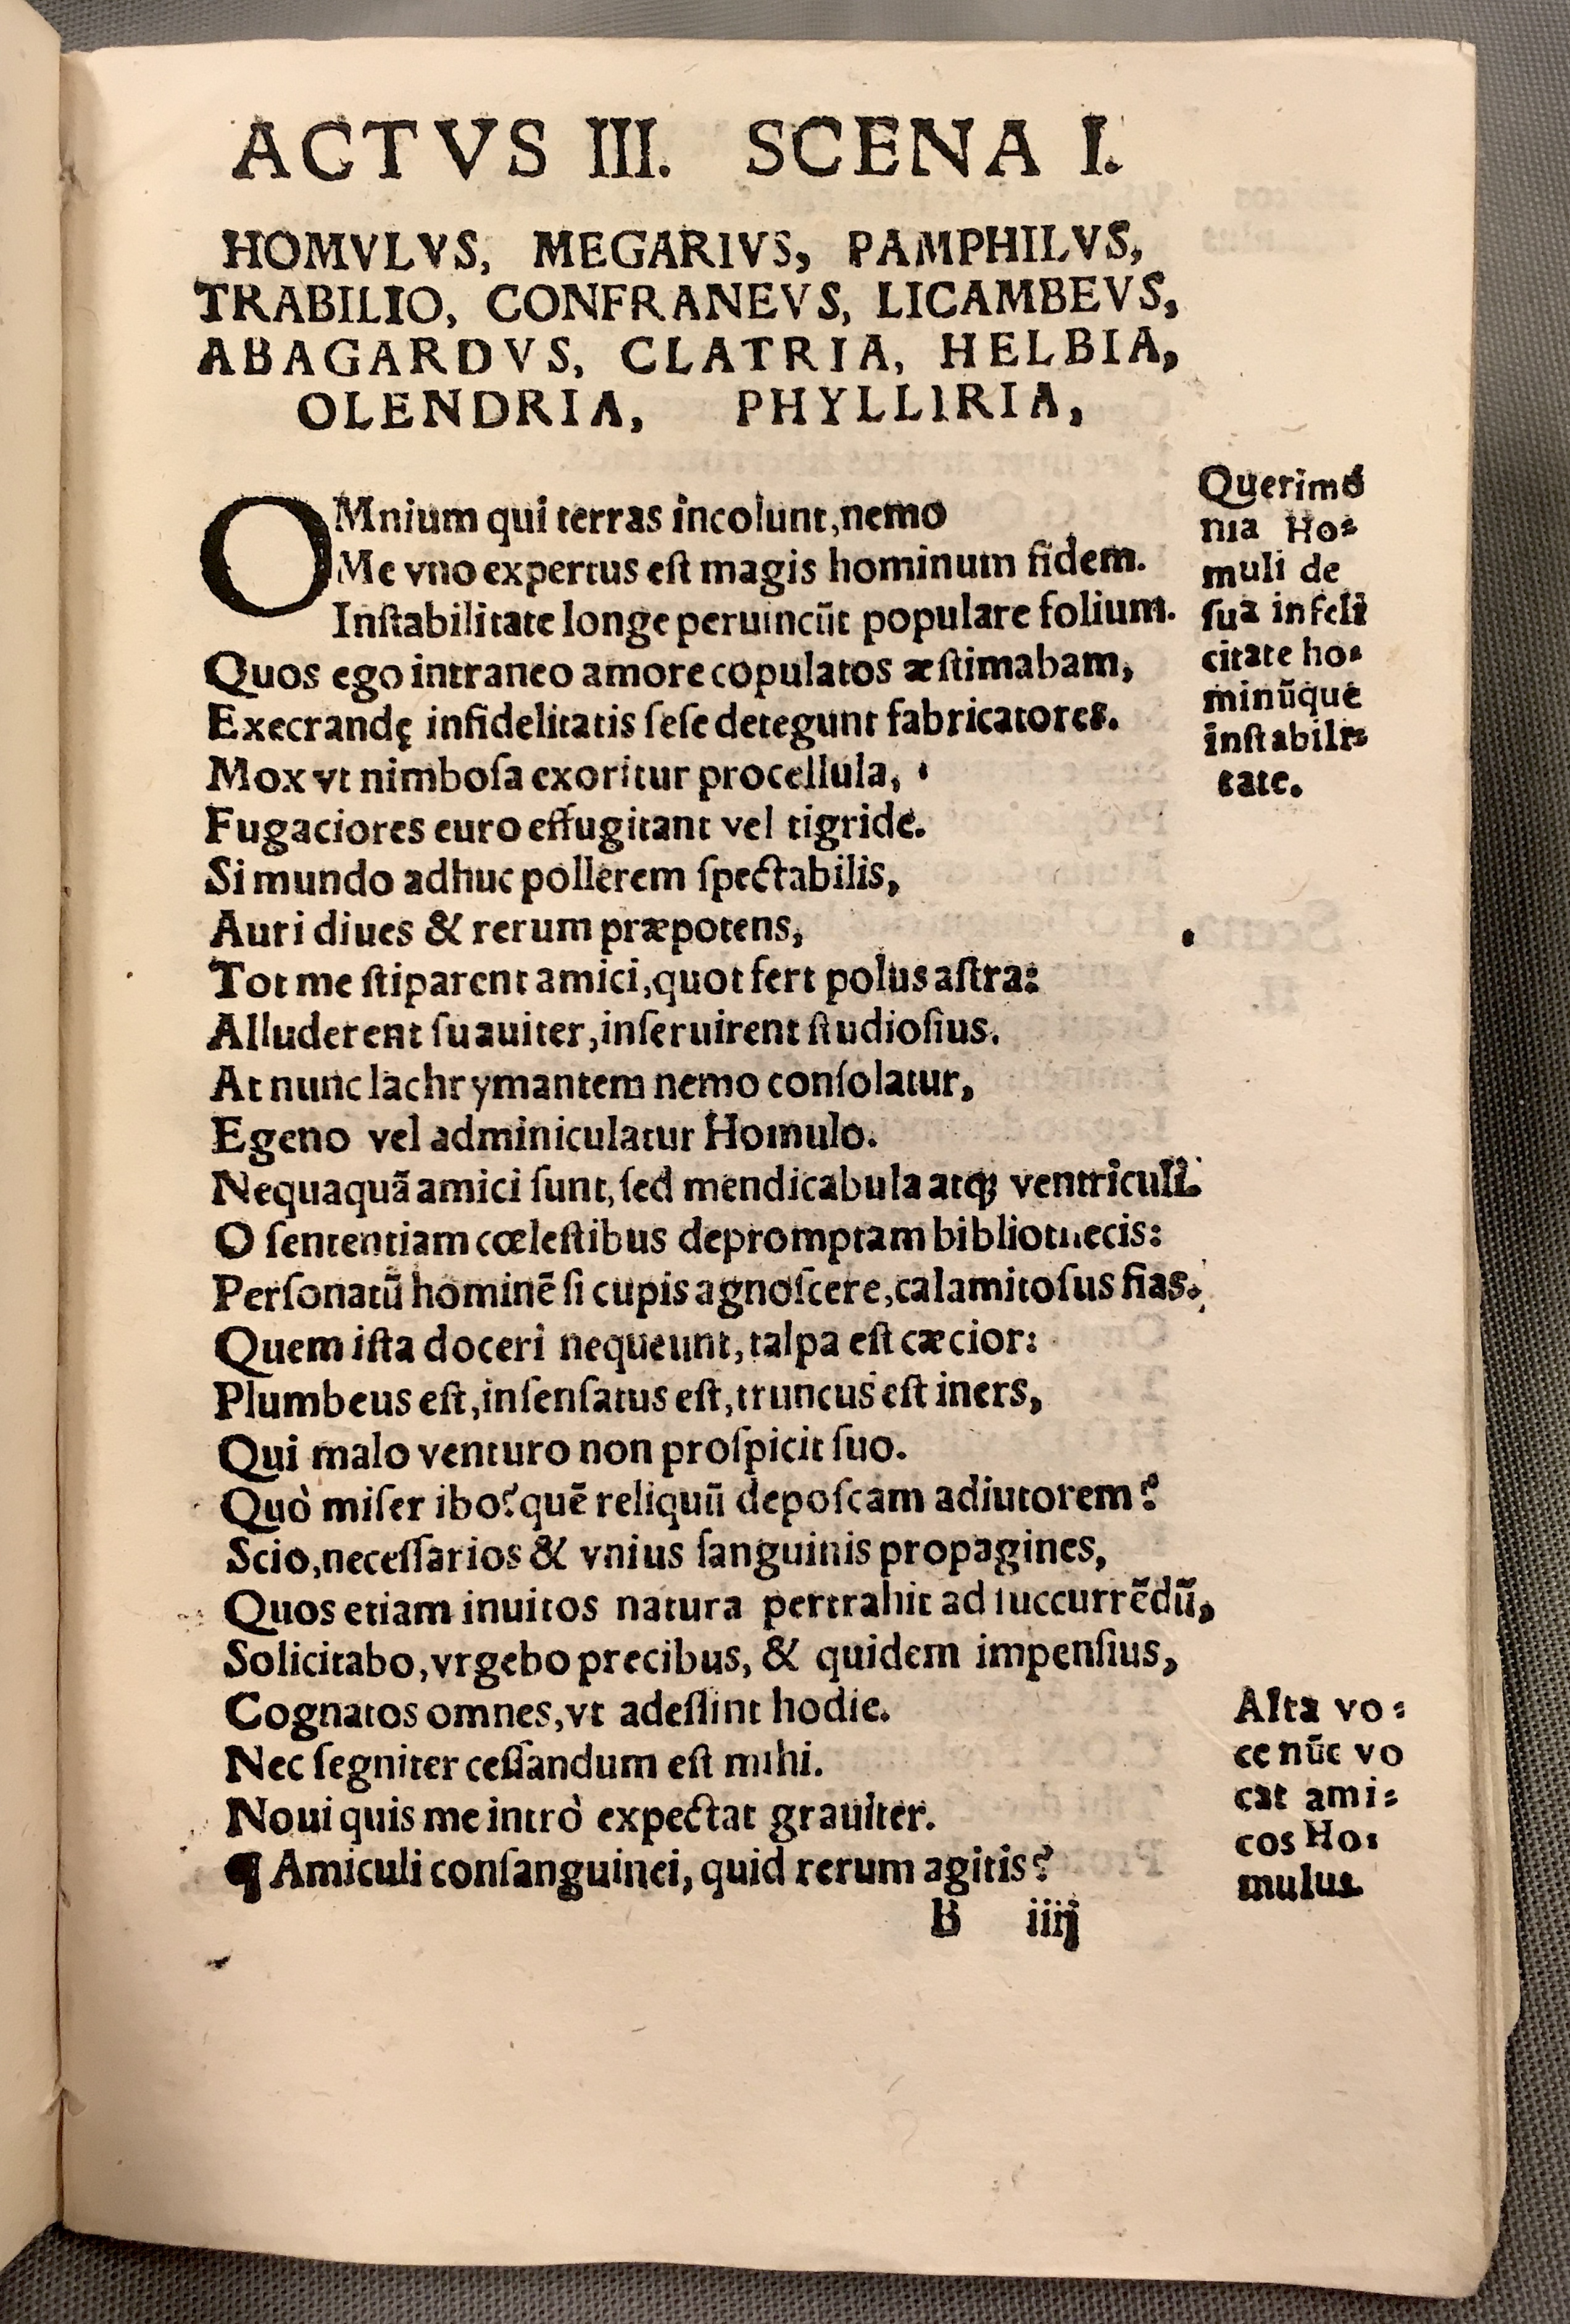 ACTVS III. SCENA I.
HOMVLVS, MEGARIVS, PAMPHILVS,
TRABILIO, CONFRANEVS, LICAMBEVS,
ABAGARDVS, CLATRIA, HELBIA,
OLENDRIA, PHYLLIRIA,
OMnium qui terras incolunt, nemo
Me vno expertus eſt magis hominum fidem.
Inſtabilitate longe peruincūt populare folium.
Quos ego intraneo amore copulatos æſtimabam,
Execrandę infidelitatis ſeſe detegunt fabricatores.
Mox vt nimboſa exoritur procellula,
Fugaciores euro effugitant vel tigride.
Si mundo adhuc pollerem ſpectabilis,
Auri diues & rerum præpotens,
Tot me ſtiparent amici, quot fert polus aſtra:
Alluderent ſuauiter, inſeruirent ſtudioſius.
At nunc lachrymantem nemo conſolatur,
Egeno vel adminiculatur Homulo.
Nequaquā amici ſunt, ſed mendicabula atqꝫ ventriculi.
O ſententiam cœleſtibus depromptam bibliothecis:
Perſonatū hominē ſi cupis agnoſcere, calamitoſus fias.
Quem iſta doceri nequeunt, talpa eſt cæcior:
Plumbeus eſt, inſenſatus eſt, truncus eſt iners,
Qui malo venturo non proſpicit ſuo.
Quò miſer ibo? quē reliquū depoſcam adiutorem?
Scio, neceſſarios & vnius ſanguinis propagines,
Quos etiam inuitos natura pertrahit ad ſuccurrēdū,
Solicitabo, vrgebo precibus, & quidem impenſius,
Cognatos omnes, vt adeſſint hodie.
Nec ſegniter ceſſandum eſt mihi.
Noui quis me intrò expectat grauiter.
¶ Amiculi conſanguinei, quid rerum agitis?
B iiij
Querimo
nia Ho-
muli de
ſua infeli
citate ho-
minūque
inſtabili-
tate.
Alta vo-
ce nūc vo
cat ami-
cos Ho-
mulus.